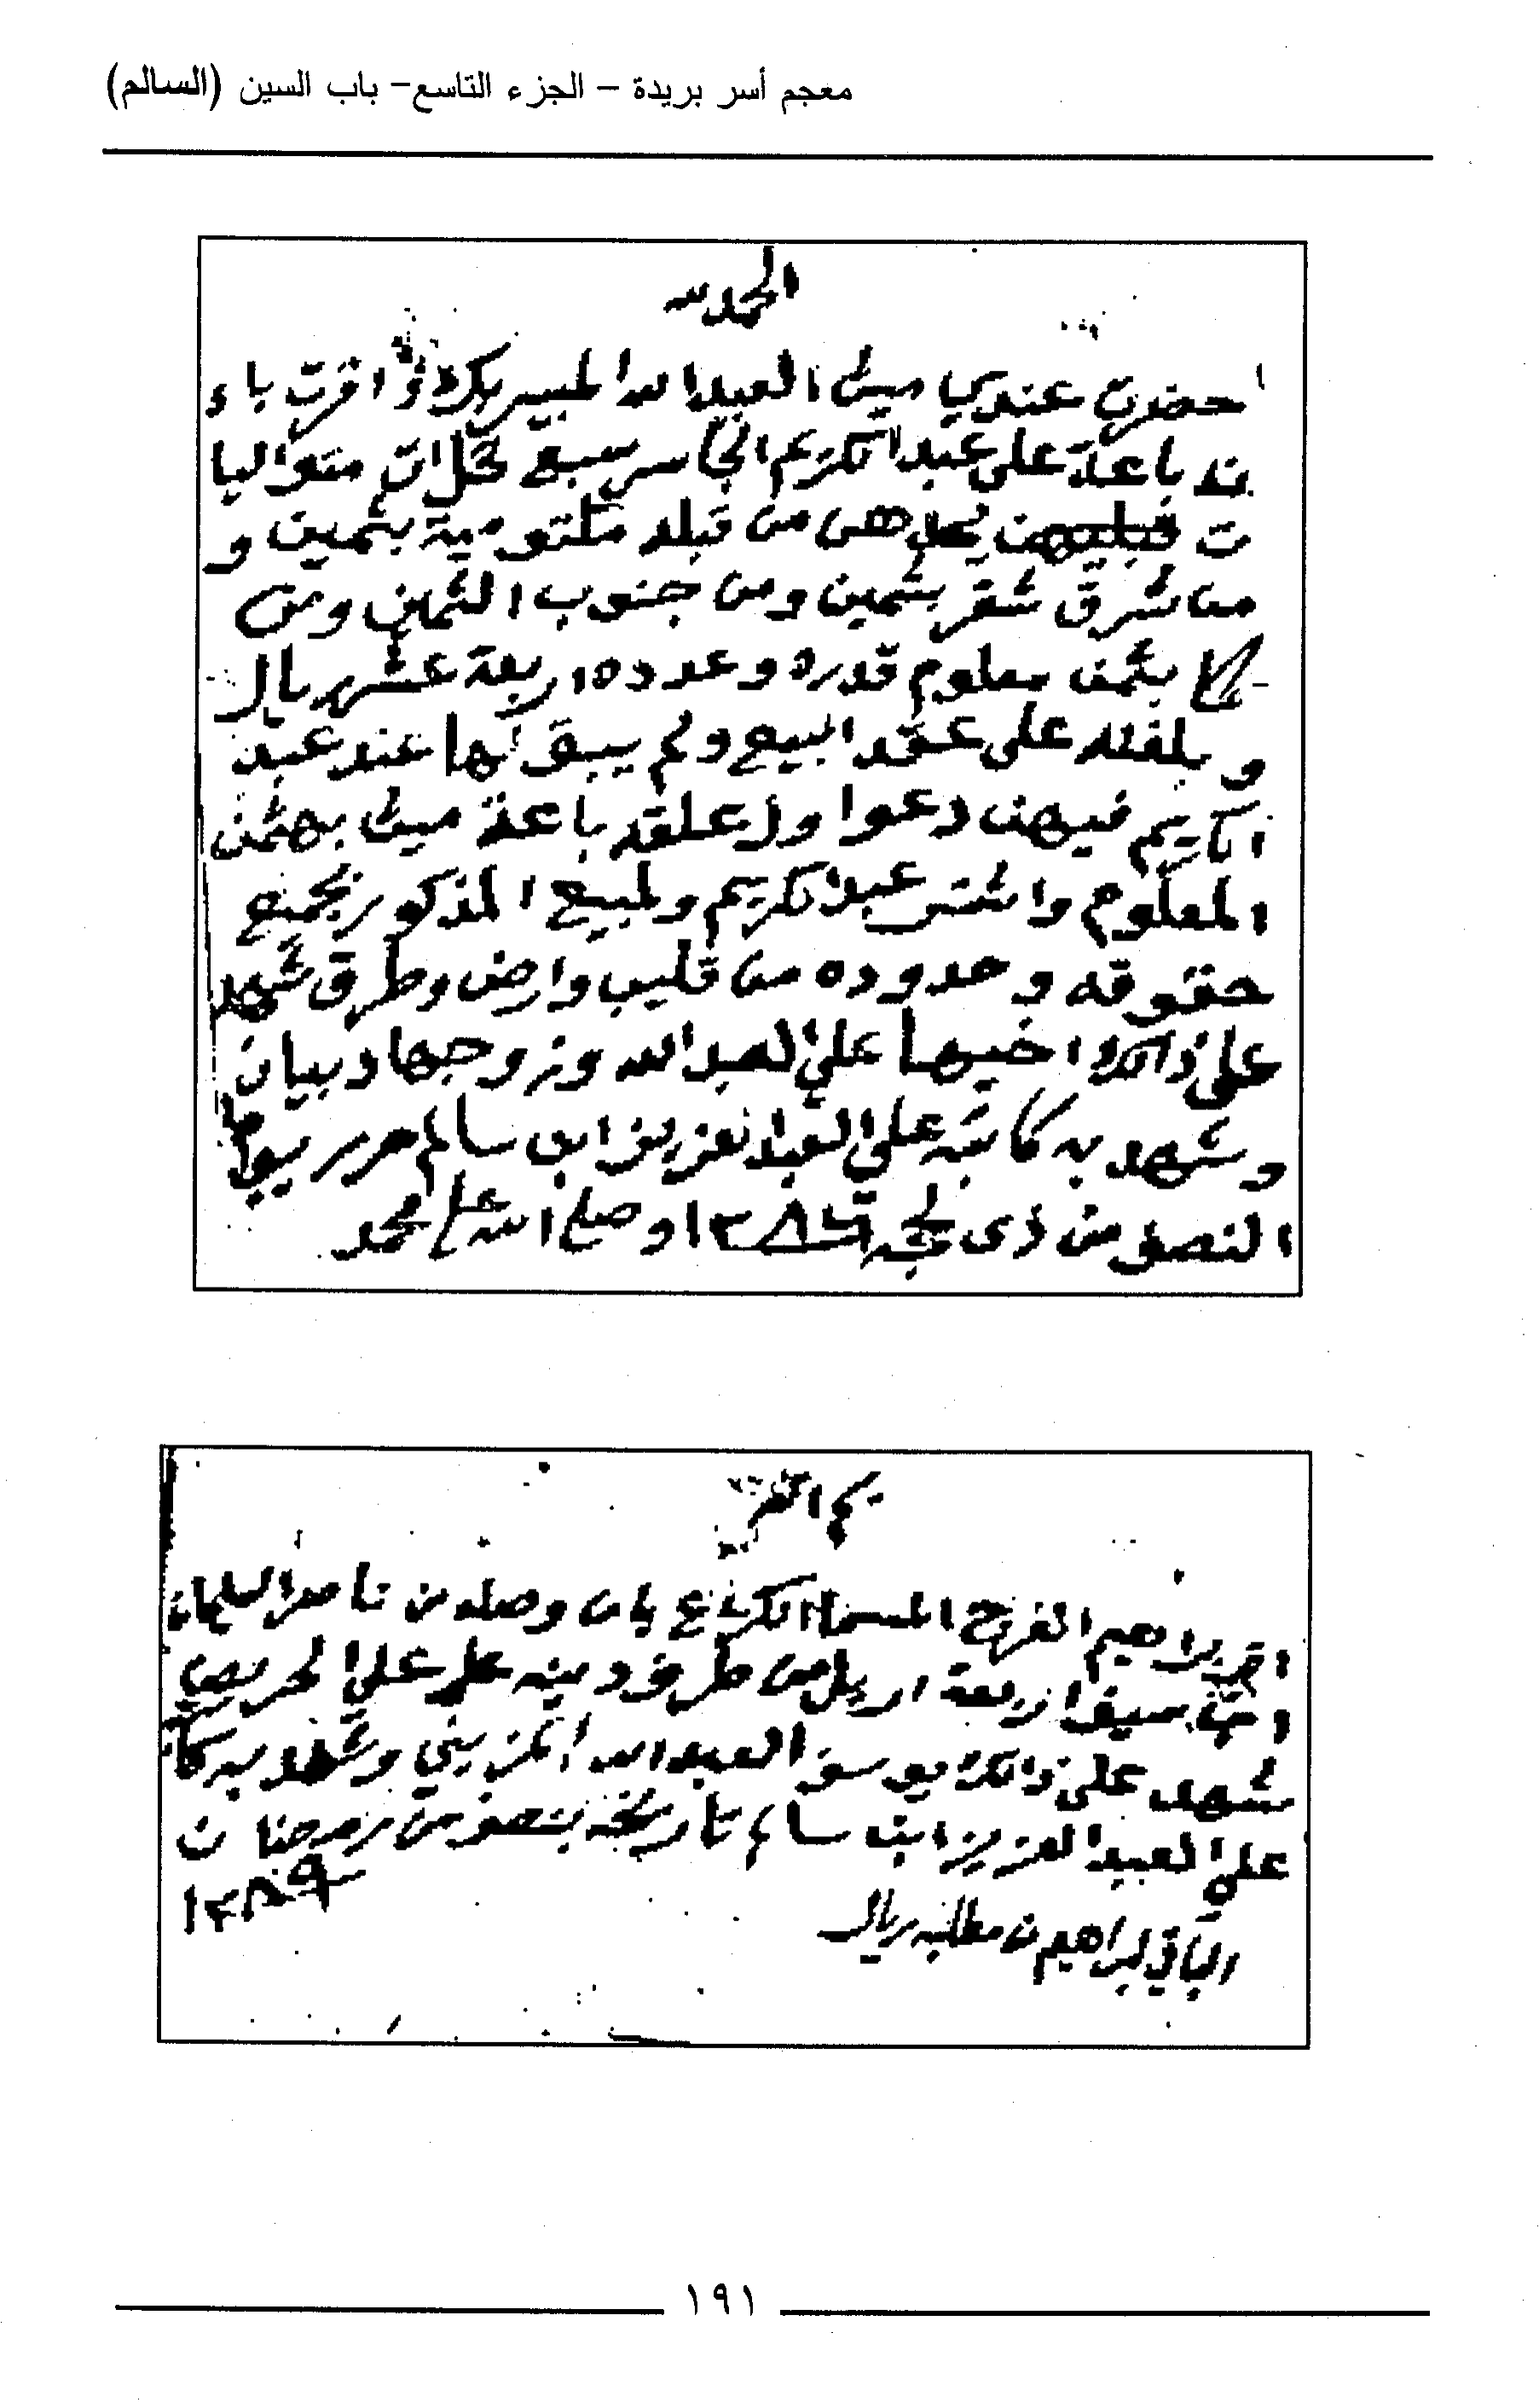 معجم أسر بريدة – الجزء التاسع– باب السين (السالم)
الحمد لله
حضرت عندي ميثا العبدالله واقرت باء
نه باعة على عبدالكريم الجاسر سبع نخلات متواليا
ت يحدهن من قبله مكتومية بثمين و
من شرق شقر بثمين ومن جنوب الثمين ومن
بثمن معلوم قدره وعدده اربعة عشر ريال
و بلغنه على عقد البيع ولم يبق لها عند عبد
الكريم فيهن دعوا ولا علقه باعة ميثا بهثمن
المعلوم واشتر عبدالكريم ولمبيع المذكور بجميع
حقوقه وحدوده من قليب وارض وطرق شهد
على ذالك اخيها علي العبدالله وزوجها دبيان
وشهد به كاتبه علي العبدالعزيز ابن سالم حرر يوم
النصف من ذي لحجه ١٢٨٦ وصلى الله على محمد
اقر براهيم الفرج المسما بان وصله من ناصر السليمان
ابن سيف اربعة اريل من طرف دينه على علي الحريص
شهد على ذالك يوسف العبدالله المزيني وشهد به كا
علي العبدالعزيز ابن سالم تاريخه بنصف من رمضان
١٢٨٩
الباقي لبراهيم من مطلبه ريال
١٩١